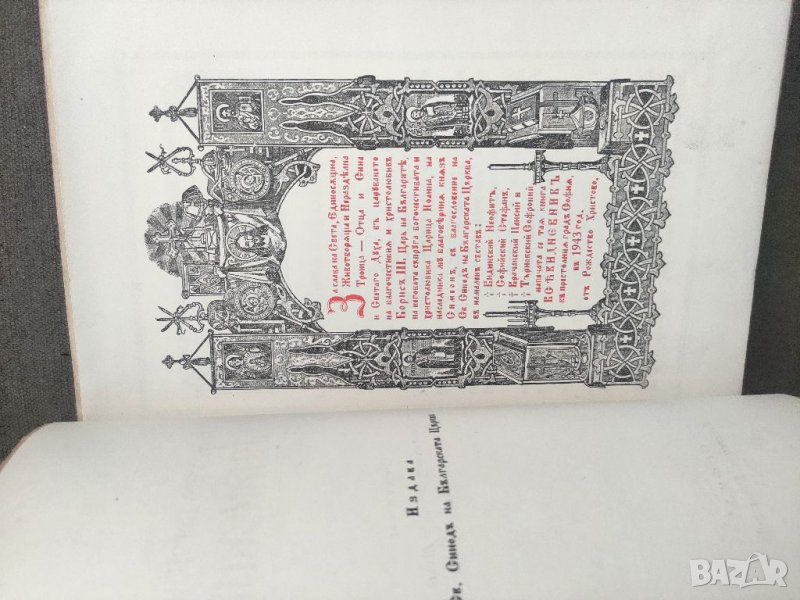 За слава на Света, Единосѫщна,
Животворяща и Нераздѣлна
Троица — Отца и Сина
и Святаго Духа, въ царуването
на благочестивия и христолюбив
Борисъ III, Царь на Българитѣ,
на неговата съпруга богочестивата и
христолюбива Царица Иоанна, на
наследникъ имъ благовѣрния князъ
Симеонъ, съ благословение на
Св. Синодъ на Българската Църква,
въ намаленъ съставъ:
† Видинский Неофитъ,
† Софийский Стефанъ,
† Врачанский Паисий и
† Търновский Софроний
напечата се тая книга
ВСѢКИДНЕВНИКЪ
въ престолния градъ София,
въ 1943 год.
отъ Рождество Христово.
Издава
Св. Синодъ на Българската Църк
BAZAR